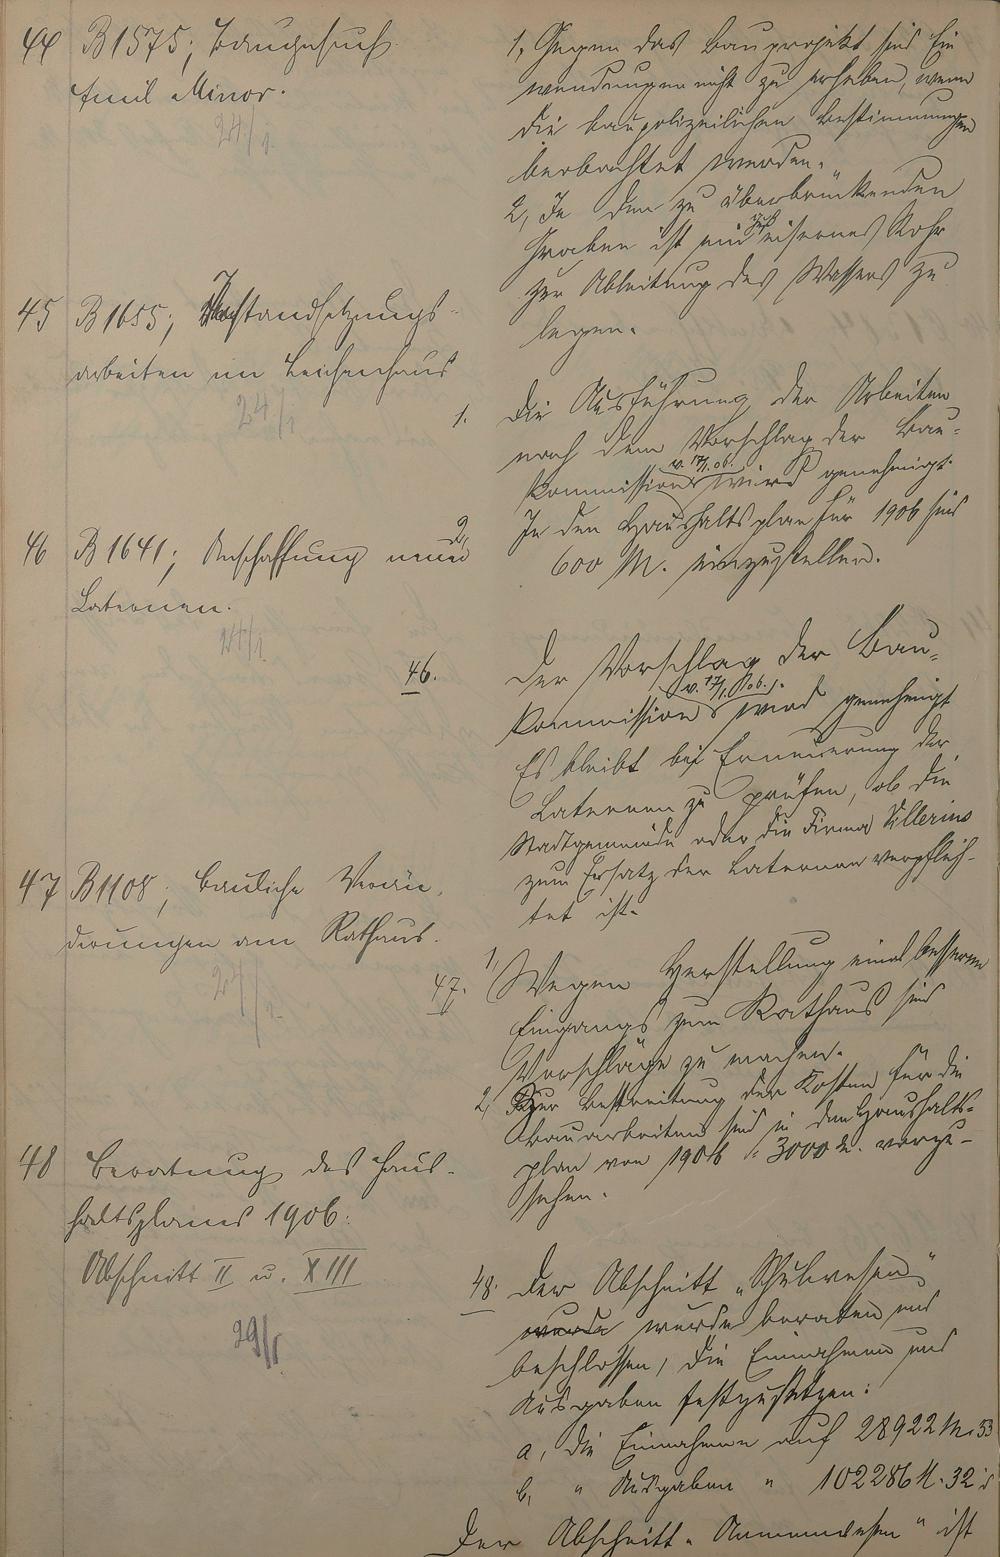 44 B 1575; Baugesuch
Emil Minor.
24/1.
1, Gegen das Bauprojekt sind Ein
wendungen nicht zu erheben, wenn
die baupolizeilichen Bestimmungen
beobachtet werden.
2, In den zu überbrückenden
Graben ist ein eisernes Rohr
zur Ableitung des Wassers zu
legen.
45 B 1655; Instandsetzungs-
arbeiten im Leichenhaus
24/1
1. Die Ausführung der Arbeiten
nach dem Vorschlag der Bau-
kommission v. 17/1. 06. wird genehmigt.
2, In den Haushaltsplan für 1906 sind
600 M. einzustellen.
46 B 1641; Anschaffung neuer
Laternen.
24/1.
46. Der Vorschlag der Bau-
kommission v. 17/1. 06. wird genehmigt
Es bleibt bei Erneuerung der
Laternen zu prüfen, ob die
Stadtgemeinde oder die Firma
zum Ersatz der Laternen verpflich-
tet ist.
47 B 1108; Bauliche Verän-
derungen am Rathaus.
24/1.
47. 1, Wegen Herstellung eines besseren
Eingangs zum Rathaus sind
Vorschläge zu machen.
2, Zur Bestreitung der Kosten für die
Bauarbeiten sind in den Haushalts-
plan von 1906 3000 M. vorzu-
sehen.
48 Beratung des Haus-
haltsplanes 1906.
Abschnitt II u. XIII
29/1
48. Der Abschnitt „Schulwesen“
wurde wurde beraten und
beschlossen, die Einnahmen und
Ausgaben festzusetzen:
a, die Einnahmen auf 28922 M. 53
b, " Ausgaben " 102286 M. 32
Der Abschnitt „Armenwesen“ ist